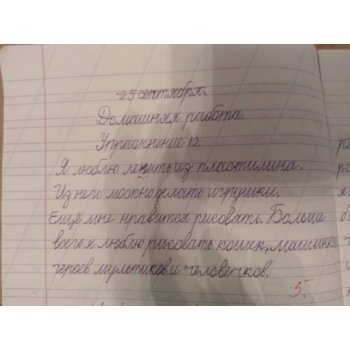 25 сентября.
Домашняя работа.
Упражнение 12.
Я люблю лепить из пластилина.
Из него можно делать игрушки.
Ещё мне нравится рисовать. Больше
всего я люблю рисовать кошек, машинки
героев мультиков и человечков.
5